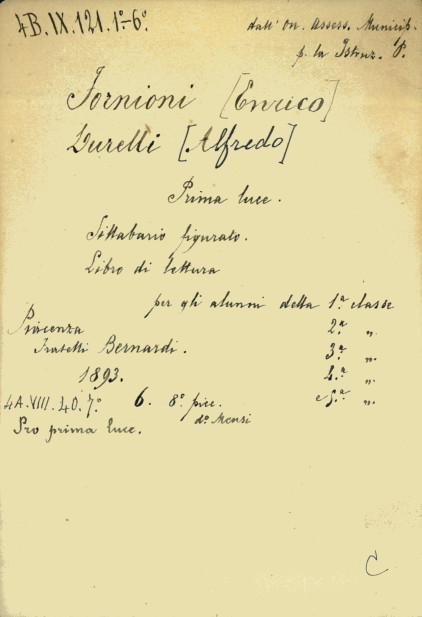 4B.IX.121.1º-6º. dall' On. Assess. Municip.
p. la Istruz. P.
Fornioni [Enrico]
Lurelli [Alfredo]
Prima luce.
Sillabario figurato.
Libro di lettura
per gli alunni della 1.a classe
Piacenza 2.a „
Fratelli Bernardi. 3.a „
1893. 4.a „
4A.VIII.40.7º 6. 8º picc. e 5.a „
dº Mensi
Pro prima luce.
C